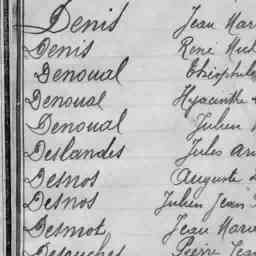 Denis Jean Mar
Denis René Mich
Denoual Théophile
Denoual Hyacinthe
Denoual Julien
Deslandes Jules
Desnos Auguste
Desnos Julien Jean
Desmot Jean Marie
Desouches Pierre Jean